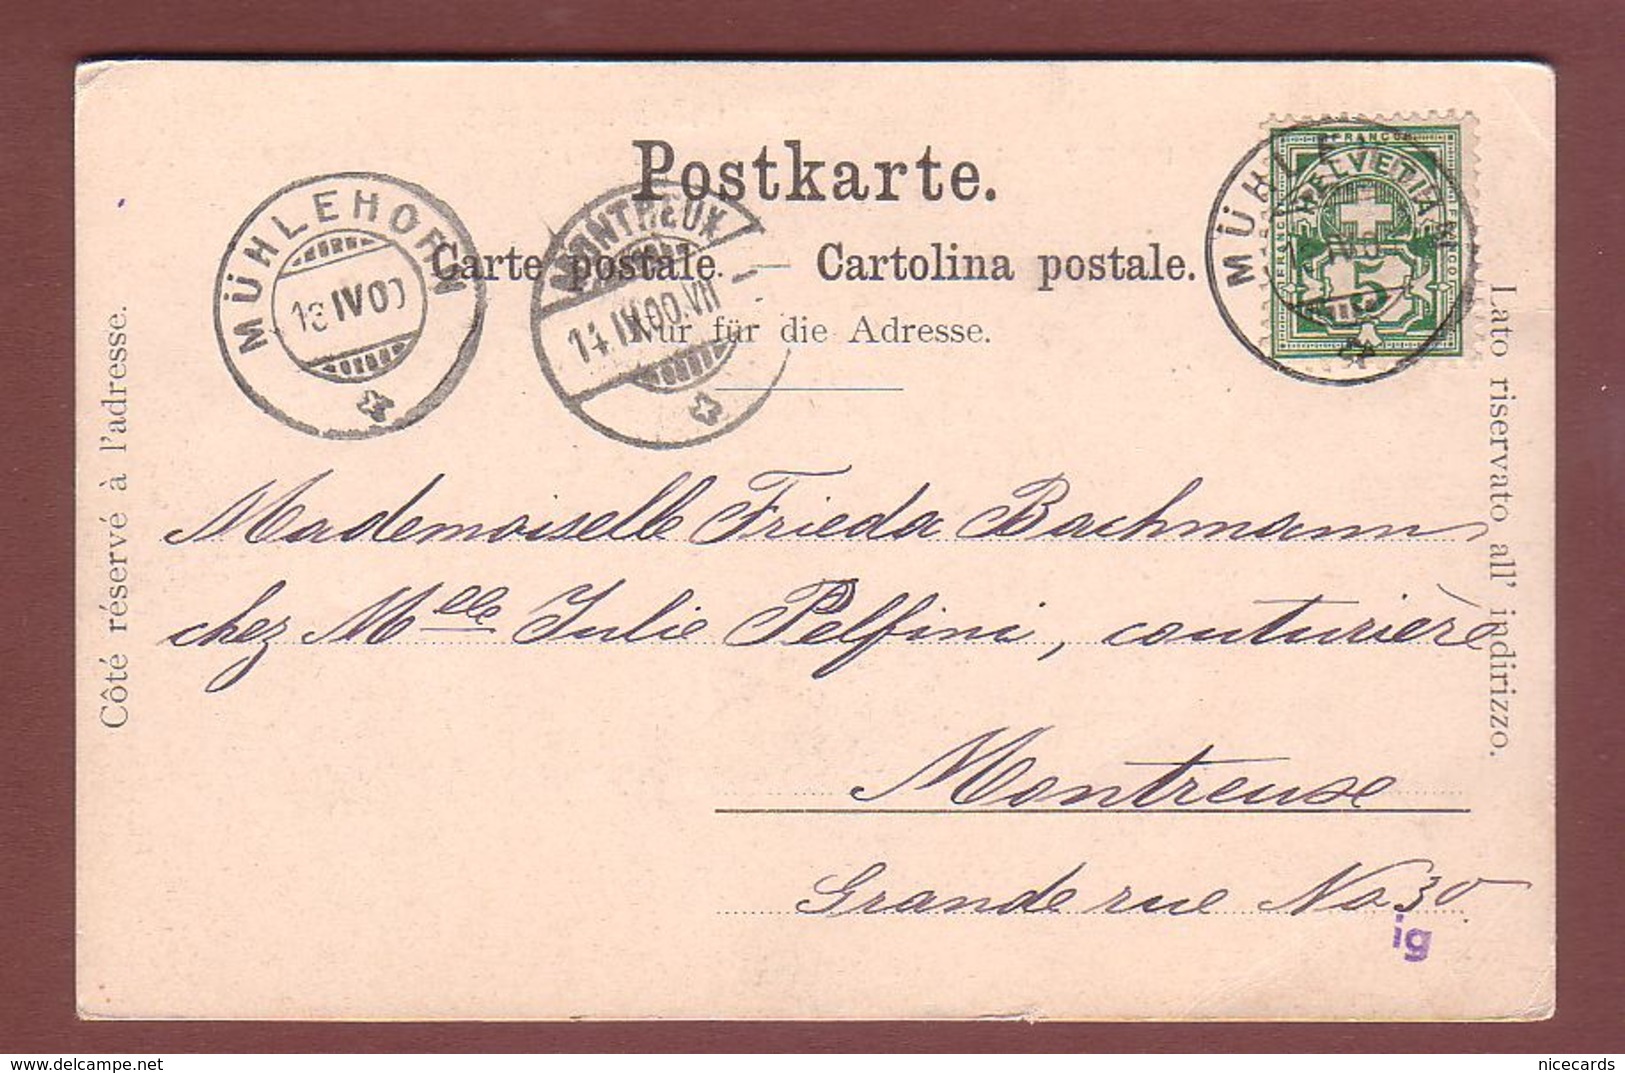 Postkarte.
Carte postale. — Cartolina postale.
Nur für die Adresse.
Côté réservé à l'adresse.
Lato riservato all' indirizzo.
MÜHLEHORN
13 IV 00
MONTREUX
14. IV. 00. VII
MÜHLE
FRANCO
HELVETIA
FRANCO
5
Mademoiselle Frieda Bachmann
chez Mlle Julie Pelfini, couturière
Montreuse
Grande rue No 30
ig
nicecards